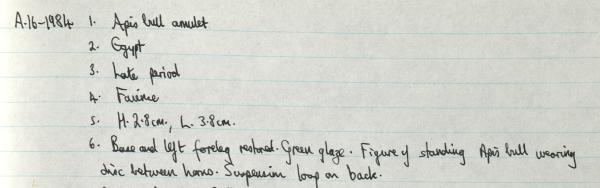 A.16-1984 1. Apis bull amulet
2. Egypt
3. Late period
4. Faience
5. H. 2.8cm., L. 3.8cm.
6. Base and left foreleg restored. Green glaze. Figure of standing Apis bull wearing
disc between horns. Suspension loop on back.